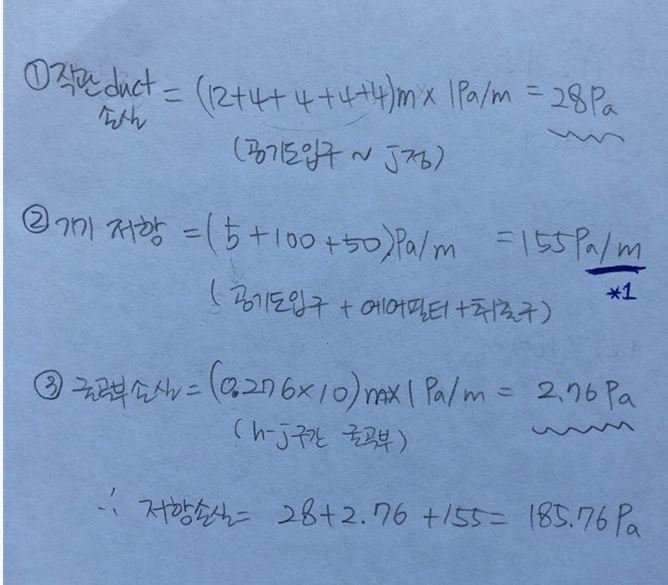 ① 직관 duct 손실 = (12+4+4+4+4)m × 1Pa/m = 28Pa
(공기도입구 ~ j점)
② 기기 저항 = (5+100+50)Pa/m = 155Pa/m
*1
(공기도입구 + 에어필터 + 취출구)
③ 굴곡부손실 = (0.276×10)m×1Pa/m = 2.76Pa
(h-j구간 굴곡부)
∴ 저항손실 = 28+2.76+155 = 185.76Pa